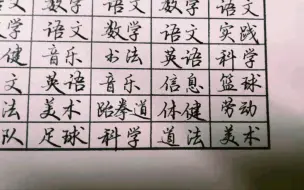 数学 语文 数学 语文
学 语文 数学 语文 实践
健 音乐 书法 英语 科学
文 英语 音乐 信息 篮球
法 美术 跆拳道 体健 劳动
队 足球 科学 道法 美术